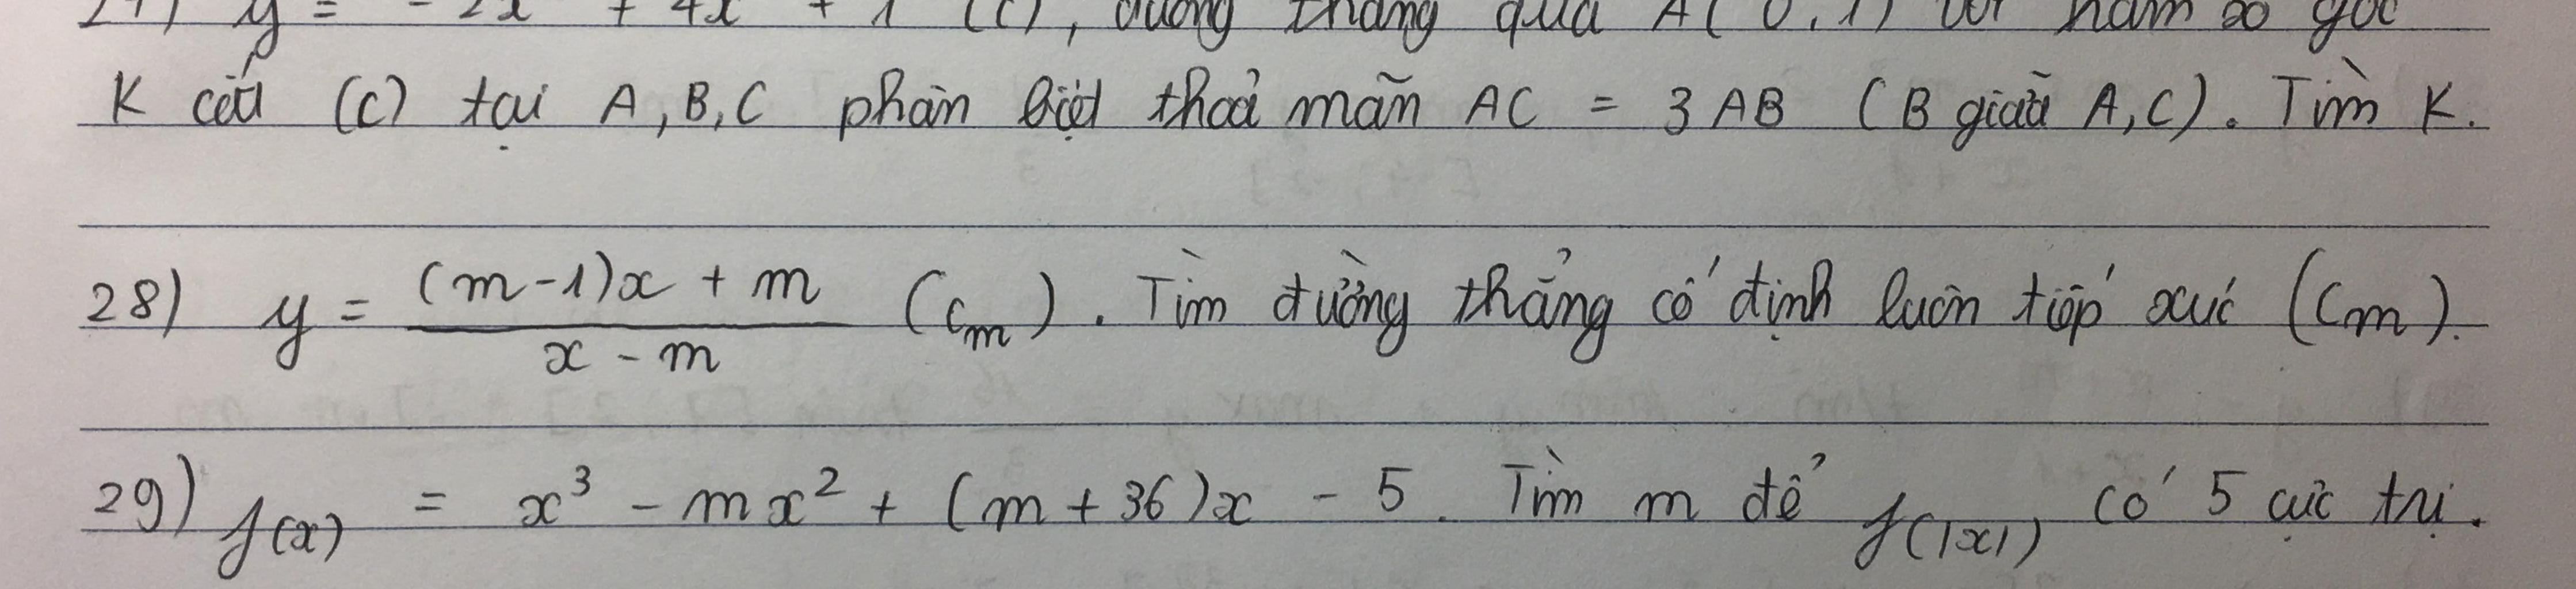 27) y = - 2x + 4x + 1 (C), đường thẳng qua A(0,1) với hàm số góc
K cắt (C) tại A, B, C phân biệt thoả mãn AC = 3AB (B giữa A, C). Tìm K.
28) y = \frac{(m-1)x + m}{x - m} (C_m). Tìm đường thẳng cố định luôn tiếp xúc (C_m).
29) f(x) = x³ - mx² + (m + 36)x - 5. Tìm m để f(|x|) có 5 cực trị.